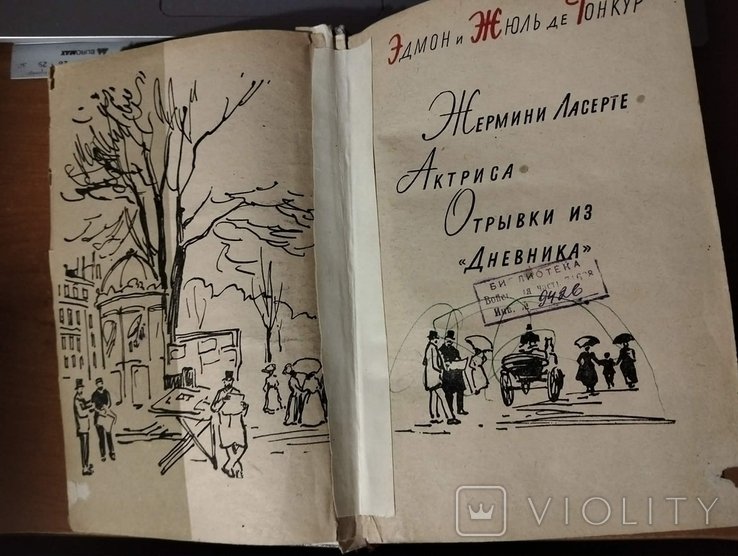 Эдмон и Жюль де Гонкур
Жермини Ласерте
Актриса
Отрывки из
«Дневника»
БИБЛИОТЕКА
Инв. № 9426
VIOLITY
EUROMAX